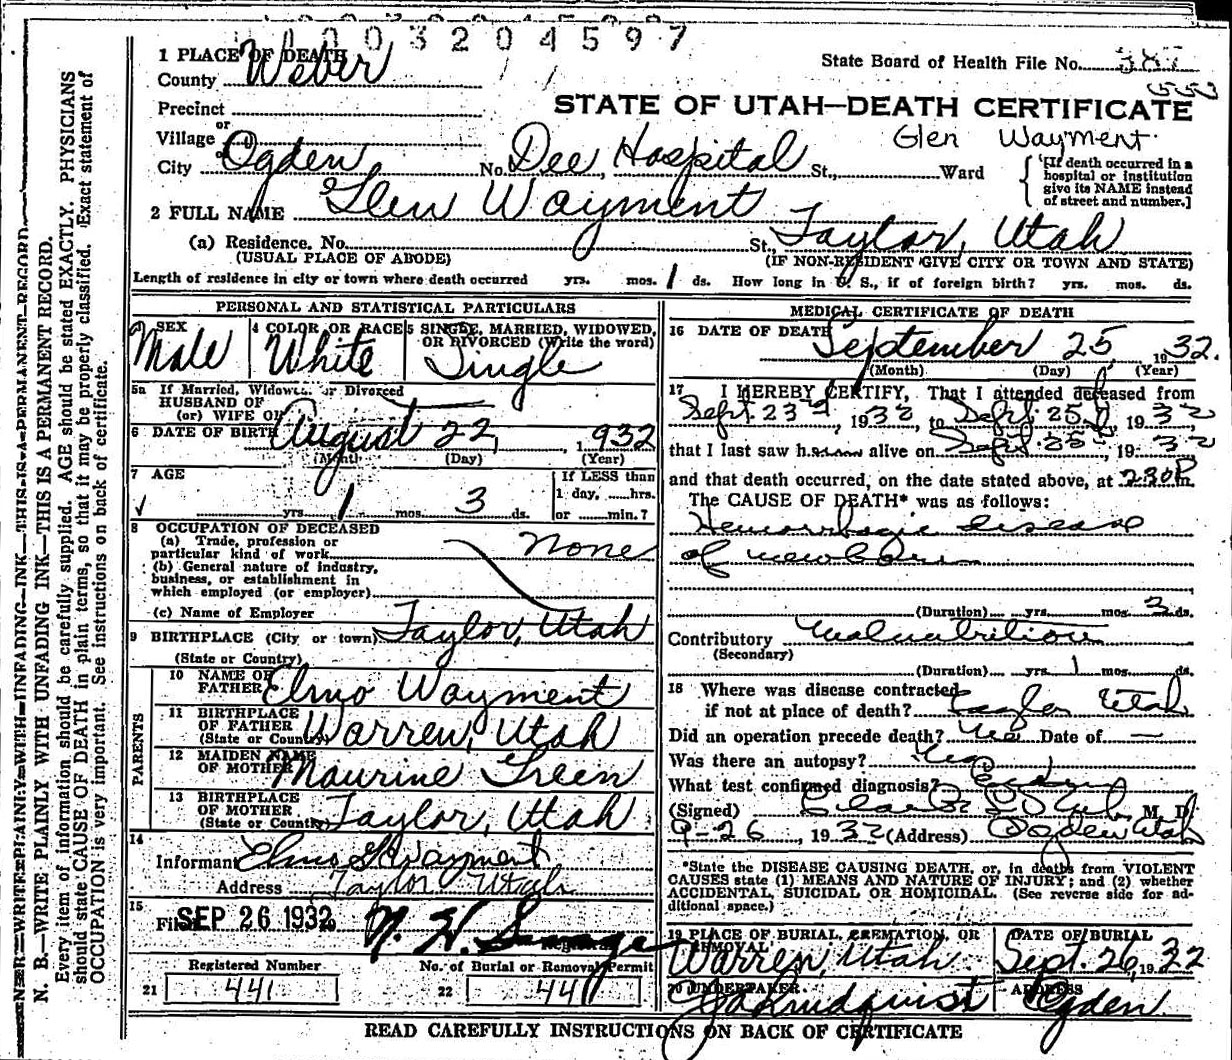 1003204597
1 PLACE OF DEATH
County Weber
State Board of Health File No. 387
553
Precinct
STATE OF UTAH—DEATH CERTIFICATE
or
Village
Glen Wayment
or
City Ogden No. Dee Hospital St., Ward
{ [If death occurred in a hospital or institution give its NAME instead of street and number.]
2 FULL NAME Glen Wayment
(a) Residence. No. St. Taylor, Utah
(USUAL PLACE OF ABODE) (IF NON-RESIDENT GIVE CITY OR TOWN AND STATE)
Length of residence in city or town where death occurred yrs. mos. 1 ds. How long in U. S., if of foreign birth? yrs. mos. ds.
PERSONAL AND STATISTICAL PARTICULARS
3 SEX Male
4 COLOR OR RACE White
5 SINGLE, MARRIED, WIDOWED, OR DIVORCED (Write the word)
Single
5a If Married, Widowed, or Divorced
HUSBAND OF
(or) WIFE OF
6 DATE OF BIRTH August 22, 1932
(Month) (Day) (Year)
7 AGE
yrs. 1 mos. 3 ds.
If LESS than
1 day, hrs.
or min.?
8 OCCUPATION OF DECEASED
(a) Trade, profession or
particular kind of work None
(b) General nature of industry,
business, or establishment in
which employed (or employer)
(c) Name of Employer
9 BIRTHPLACE (City or town) Taylor, Utah
(State or Country)
PARENTS
10 NAME OF FATHER Elmo Wayment
11 BIRTHPLACE OF FATHER (State or Country) Warren, Utah
12 MAIDEN NAME OF MOTHER Maurine Green
13 BIRTHPLACE OF MOTHER (State or Country) Taylor, Utah
14
Informant Elmo G Wayment
Address Taylor Utah
15
Filed SEP 26 1932 N. H. Savage
Registrar
Registered Number No. of Burial or Removal Permit
21 441 22 441
MEDICAL CERTIFICATE OF DEATH
16 DATE OF DEATH September 25, 1932.
(Month) (Day) (Year)
17 I HEREBY CERTIFY, That I attended deceased from
Sept. 23rd, 1932, to Sept. 25, 1932
that I last saw him alive on Sept 25, 1932
and that death occurred, on the date stated above, at 2:30 P m.
The CAUSE OF DEATH* was as follows:
Hemorrhagic disease
of newborn
(Duration) yrs. mos. 3 ds.
Contributory Malnutrition
(Secondary)
(Duration) yrs. 1 mos. ds.
18 Where was disease contracted
if not at place of death? Taylor Utah
Did an operation precede death? No Date of —
Was there an autopsy? No
What test confirmed diagnosis?
(Signed) M. D.
9-26, 1932 (Address) Ogden Utah
*State the DISEASE CAUSING DEATH, or, in deaths from VIOLENT
CAUSES state (1) MEANS AND NATURE OF INJURY; and (2) whether
ACCIDENTAL, SUICIDAL OR HOMICIDAL. (See reverse side for ad-
ditional space.)
19 PLACE OF BURIAL, CREMATION, OR REMOVAL
Warren, Utah
DATE OF BURIAL
Sept. 26, 1932
20 UNDERTAKER
Lindquist
ADDRESS
Ogden
READ CAREFULLY INSTRUCTIONS ON BACK OF CERTIFICATE
N. B.—WRITE PLAINLY WITH UNFADING INK—THIS IS A PERMANENT RECORD.
Every item of information should be carefully supplied. AGE should be stated EXACTLY. PHYSICIANS
should state CAUSE OF DEATH in plain terms, so that it may be properly classified. Exact statement of
OCCUPATION is very important. See instructions on back of certificate.